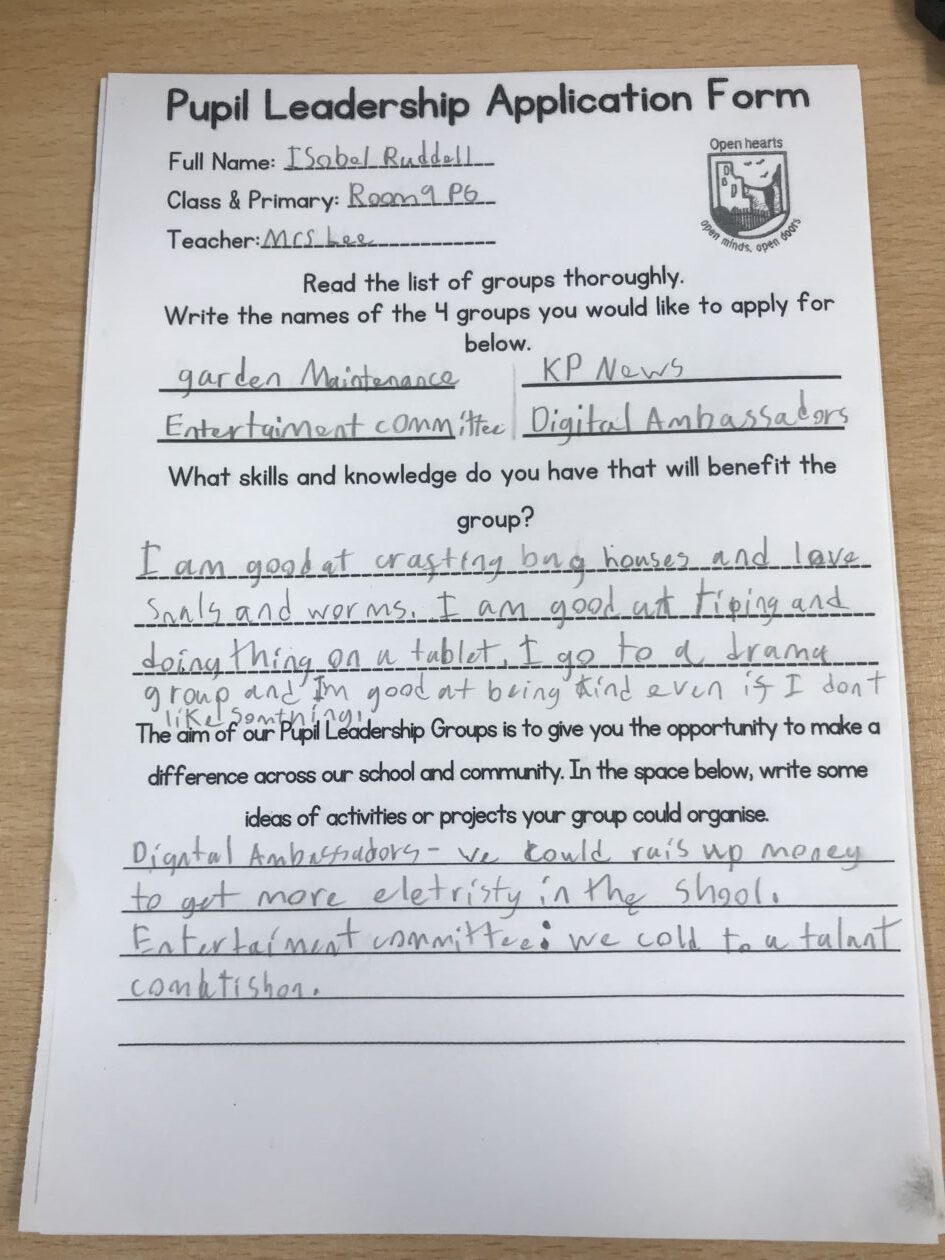 Pupil Leadership Application Form
Full Name: Isabel Ruddell
Open hearts
open minds, open doors
Class & Primary: Room 9 P6
Teacher: Mrs Lee
Read the list of groups thoroughly.
Write the names of the 4 groups you would like to apply for
below.
garden Maintenance KP News
Entertaiment committee Digital Ambassadors
What skills and knowledge do you have that will benefit the
group?
I am good at crafting bug houses and love
Snals and worms. I am good at tiping and
doing thing on a tablet, I go to a drama
group and I'm good at being kind even if I dont
like somthing!
The aim of our Pupil Leadership Groups is to give you the opportunity to make a
difference across our school and community. In the space below, write some
ideas of activities or projects your group could organise.
Digatal Ambassadors - we could rais up money
to get more eletristy in the shool.
Entertaiment committee: we cold to a talant